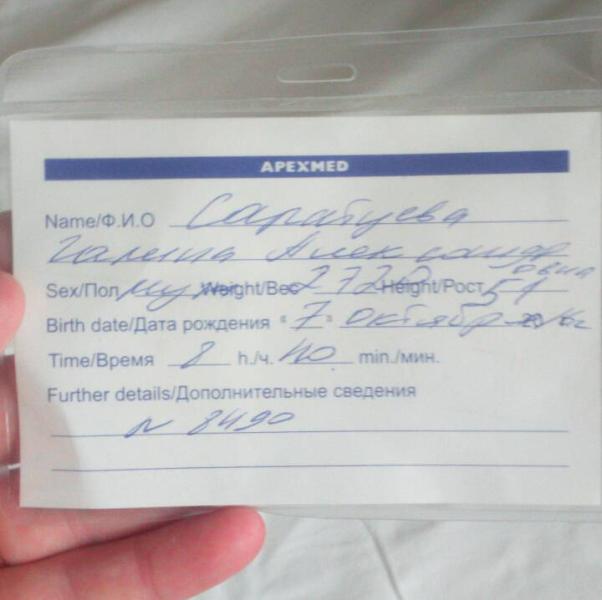 APEXMED
Name/Ф.И.О Саратуева
Галина Александровна
Sex/Пол муж Weight/Вес 2720 Height/Рост 51
Birth date/Дата рождения "7" октября
Time/Время 8 h./ч. 40 min./мин.
Further details/Дополнительные сведения
N 8490